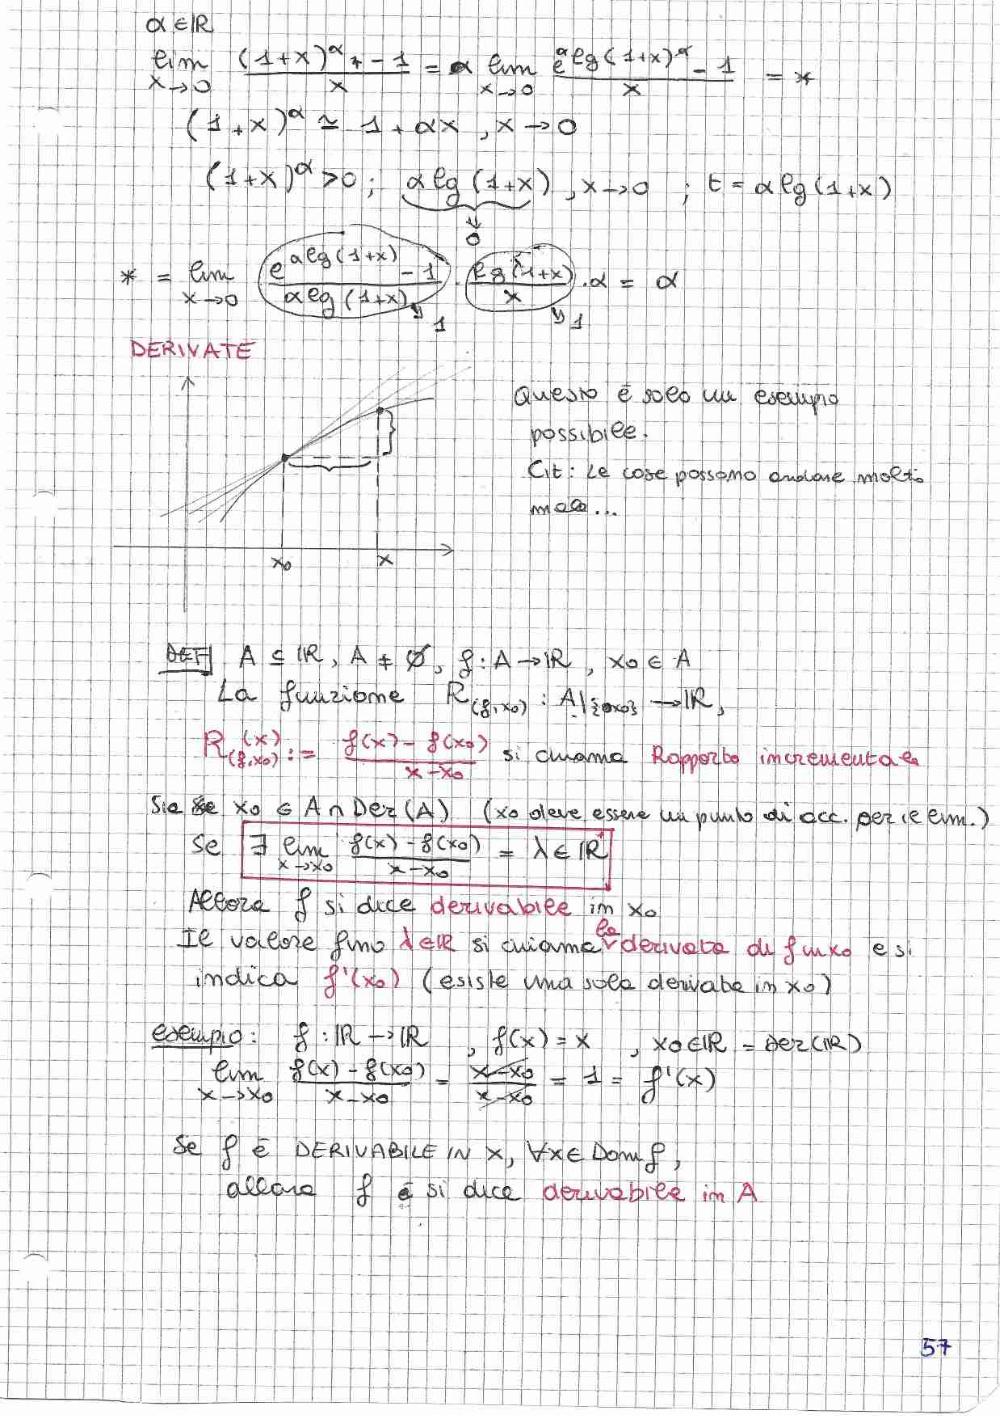 α∈ℝ
lim x→0 ((1+x)^α - 1)/x = lim x→0 (e^(lg(1+x)^α) - 1)/x = *
(1+x)^α ≃ 1+αx, x→0
(1+x)^α>0; αlg(1+x), x→0 ; t=αlg(1+x)
↓
0
* = lim x→0 (e^(αlg(1+x)) - 1)/(αlg(1+x)) · lg(1+x)/x · α = α
↘1 ↘1
DERIVATE
Questo è solo un esempio
possibile.
Cit: Le cose possono andare molto
male...
x₀ x
DEF A⊆ℝ, A≠∅, f:A→ℝ, x₀∈A
La funzione R(f,x₀) : A|{x₀} →ℝ,
R(f,x₀)(x) := (f(x)-f(x₀))/(x-x₀) si chiama Rapporto incrementale
Sia x₀ ∈ A∩Der(A) (x₀ deve essere un punto di acc. per il lim.)
Se ∃ lim x→x₀ (f(x)-f(x₀))/(x-x₀) = λ∈ℝ
Allora f si dice derivabile in x₀
Il valore fino λ∈ℝ si chiama la derivata di f in x₀ e si
indica f'(x₀) (esiste una sola derivata in x₀)
esempio: f:ℝ→ℝ , f(x)=x , x₀∈ℝ=Der(ℝ)
lim x→x₀ (f(x)-f(x₀))/(x-x₀) = (x-x₀)/(x-x₀) = 1 = f'(x)
Se f è DERIVABILE IN x, ∀x∈Dom f,
allora f si dice derivabile in A
57